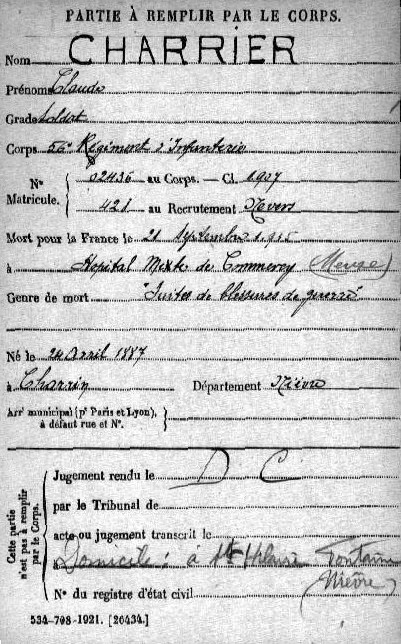 PARTIE À REMPLIR PAR LE CORPS.
Nom CHARRIER
Prénoms Claude
Grade Soldat
Corps 56e Régiment d'Infanterie
No Matricule. { 02436 au Corps. — Cl. 1907
421 au Recrutement Nevers
Mort pour la France le 21 septembre 1915
à Hôpital Mixte de Commercy (Meuse)
Genre de mort "Suites de blessures de guerre"
Né le 24 Avril 1887
à Charrin Département Nièvre
Arrt municipal (pr Paris et Lyon), à défaut rue et No.
Cette partie n'est pas à remplir par le Corps.
Jugement rendu le D C
par le Tribunal de
acte ou jugement transcrit le
à Domicile : à St Hilaire Fontaine
(Nièvre)
No du registre d'état civil
534-708-1921. [26434.]